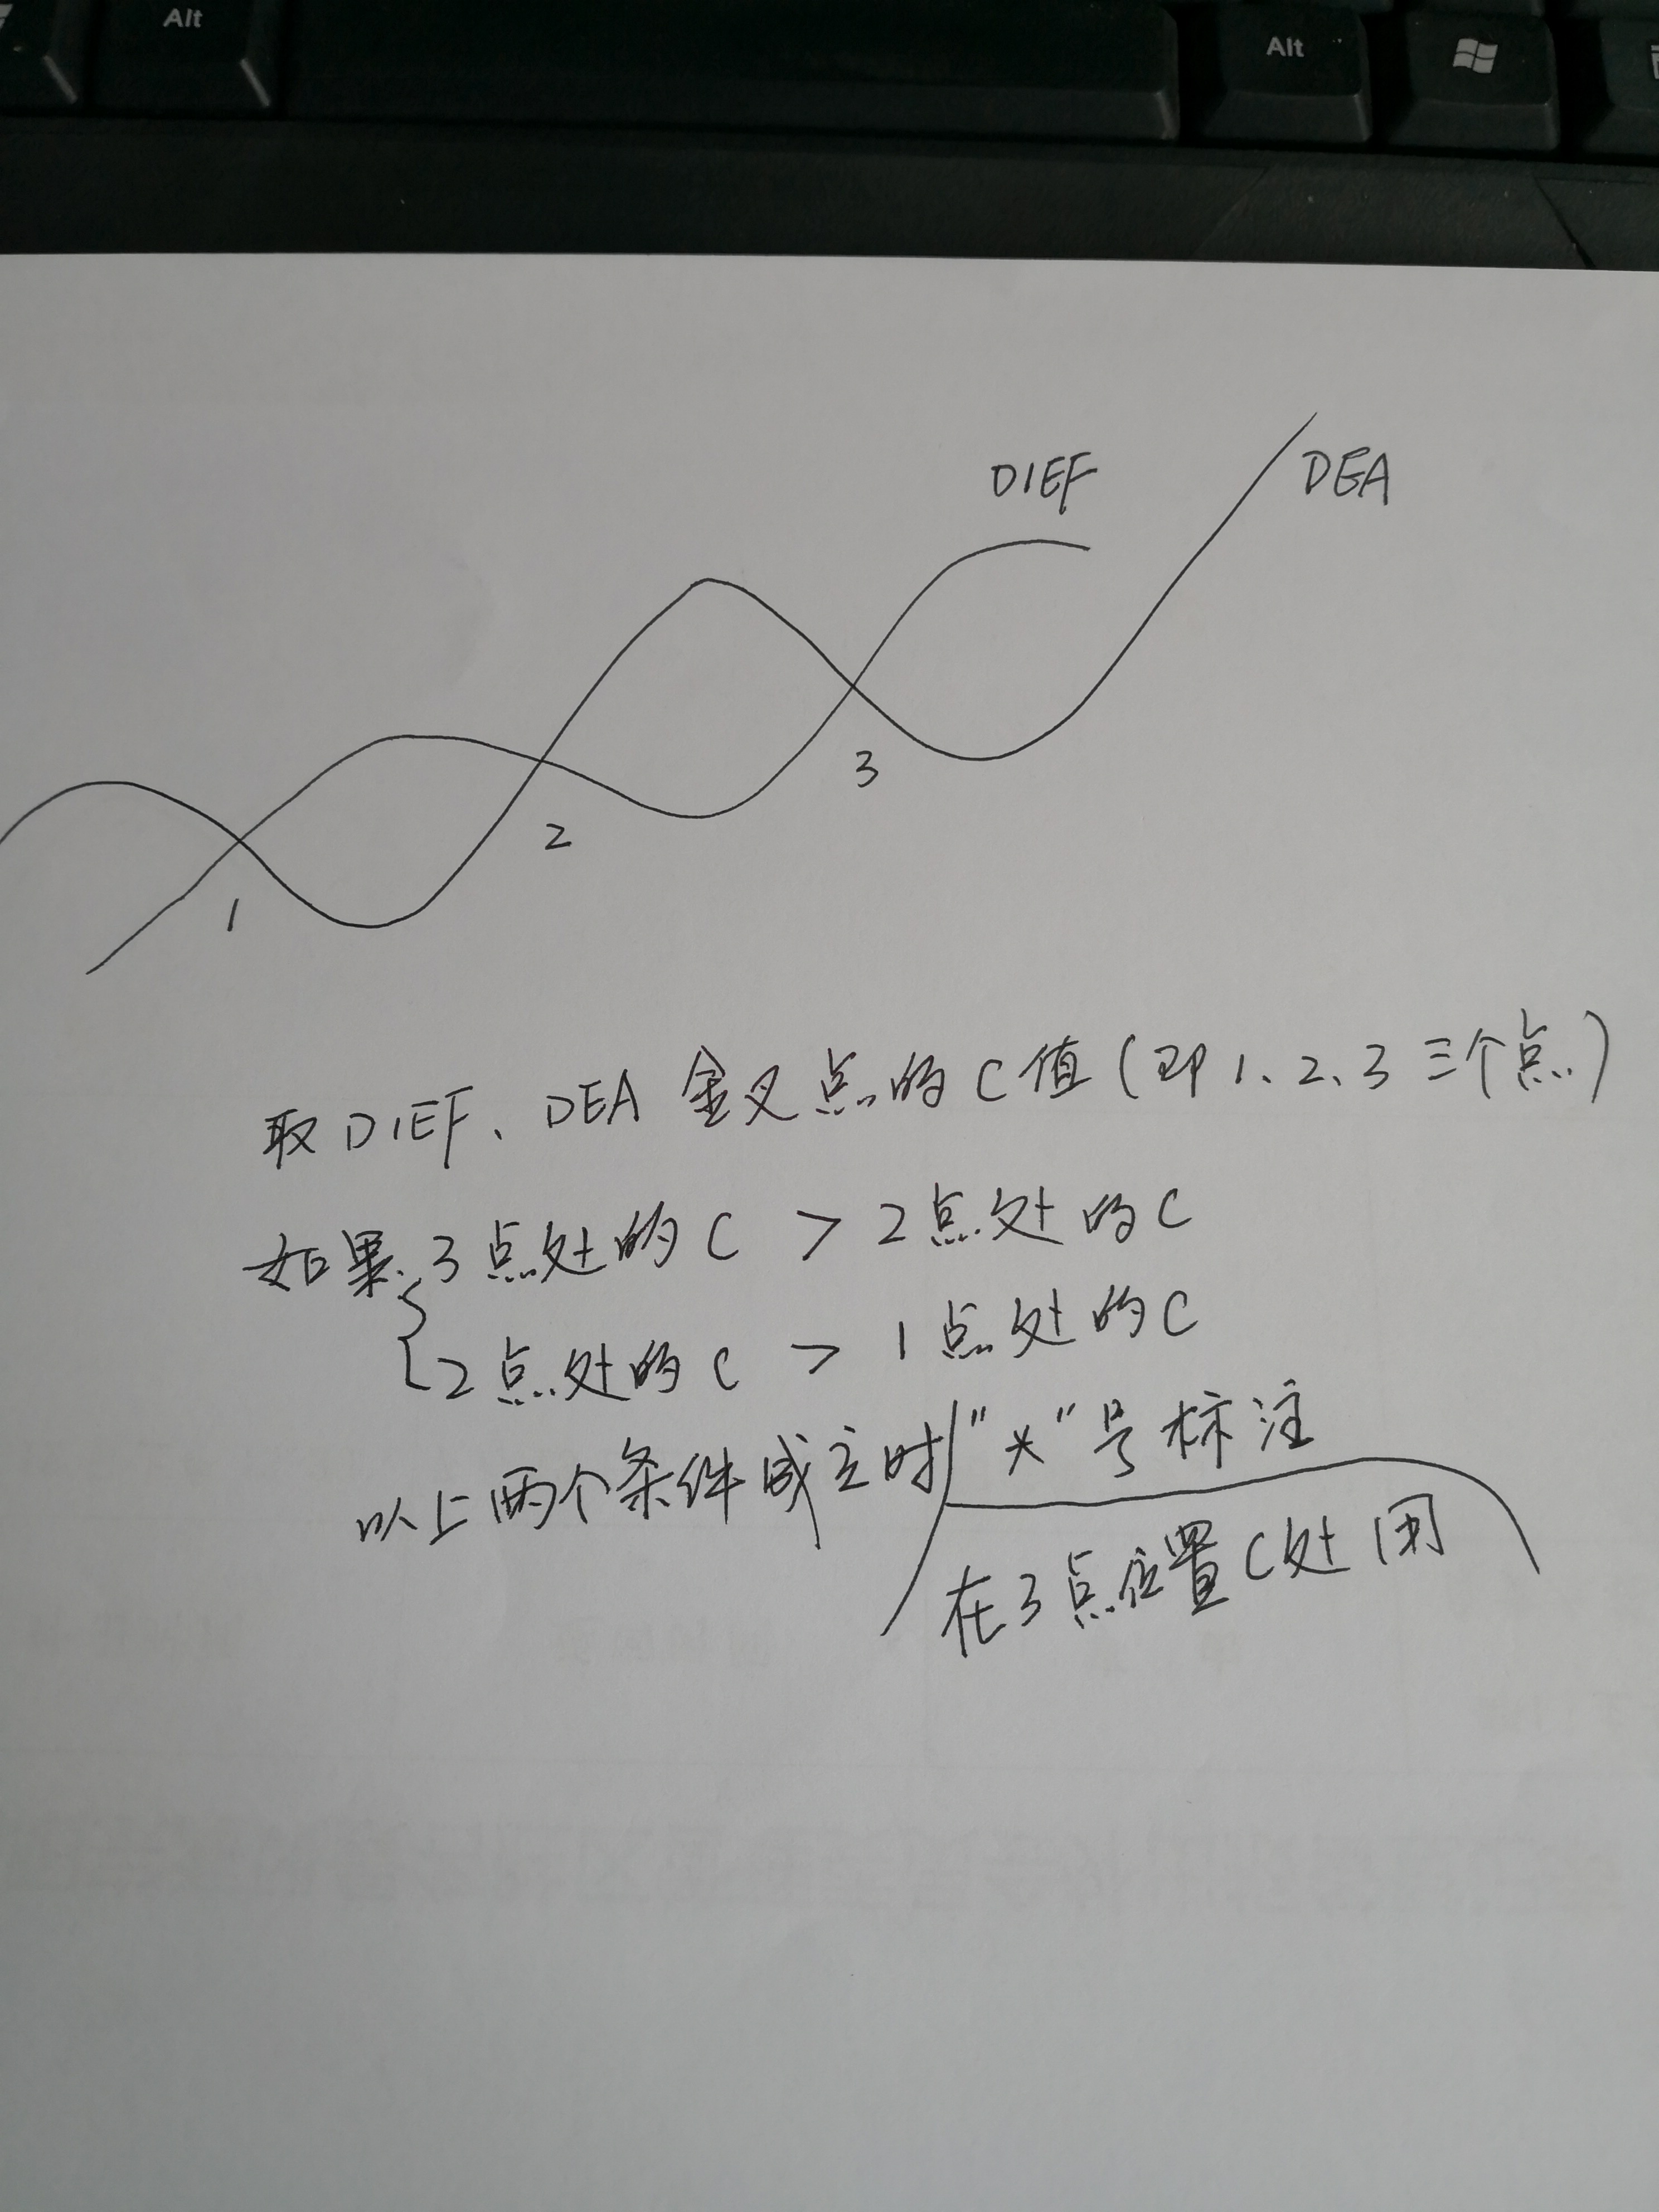 Alt
Alt
DIEF
DEA
3
2
1
取DIEF、DEA金叉点的C值(即1、2、3三个点)
如果 3点处的C > 2点处的C
{2点处的C > 1点处的C
以上两个条件成立时"*"号标注
在3点位置C处用